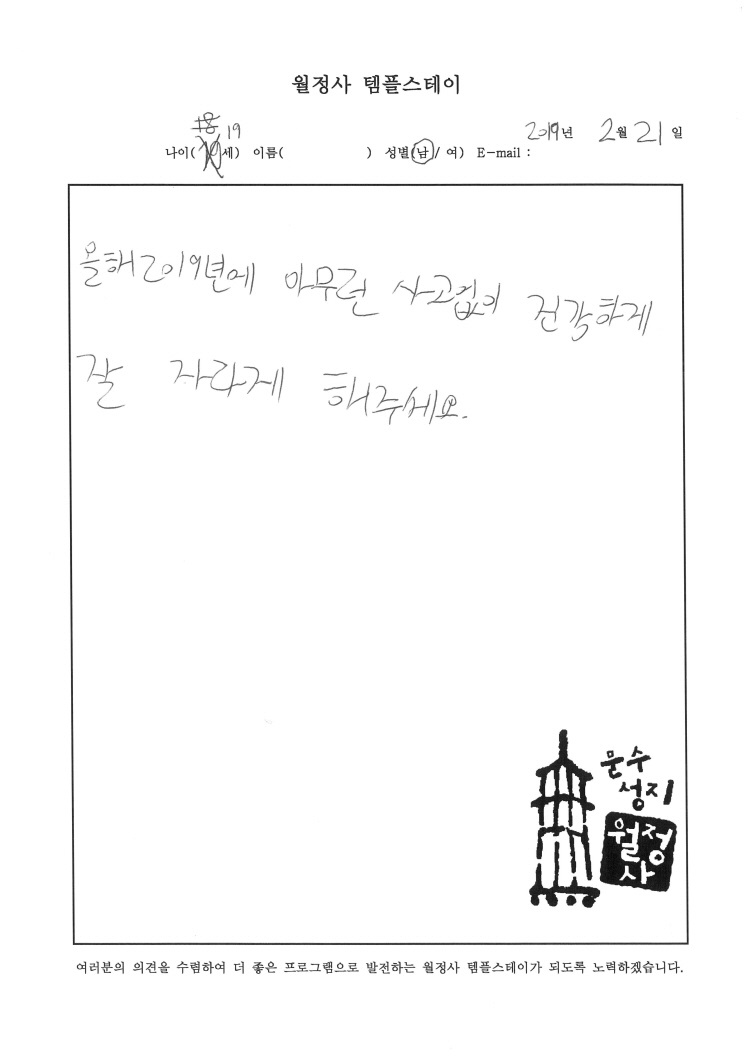 월정사 템플스테이
19
2019년 2월 21일
나이( 세) 이름( ) 성별(남/ 여) E-mail :
올해2019년에 아무런 사고없이 건강하게
잘 자라게 해주세요.
문수
성지
월정
사
여러분의 의견을 수렴하여 더 좋은 프로그램으로 발전하는 월정사 템플스테이가 되도록 노력하겠습니다.